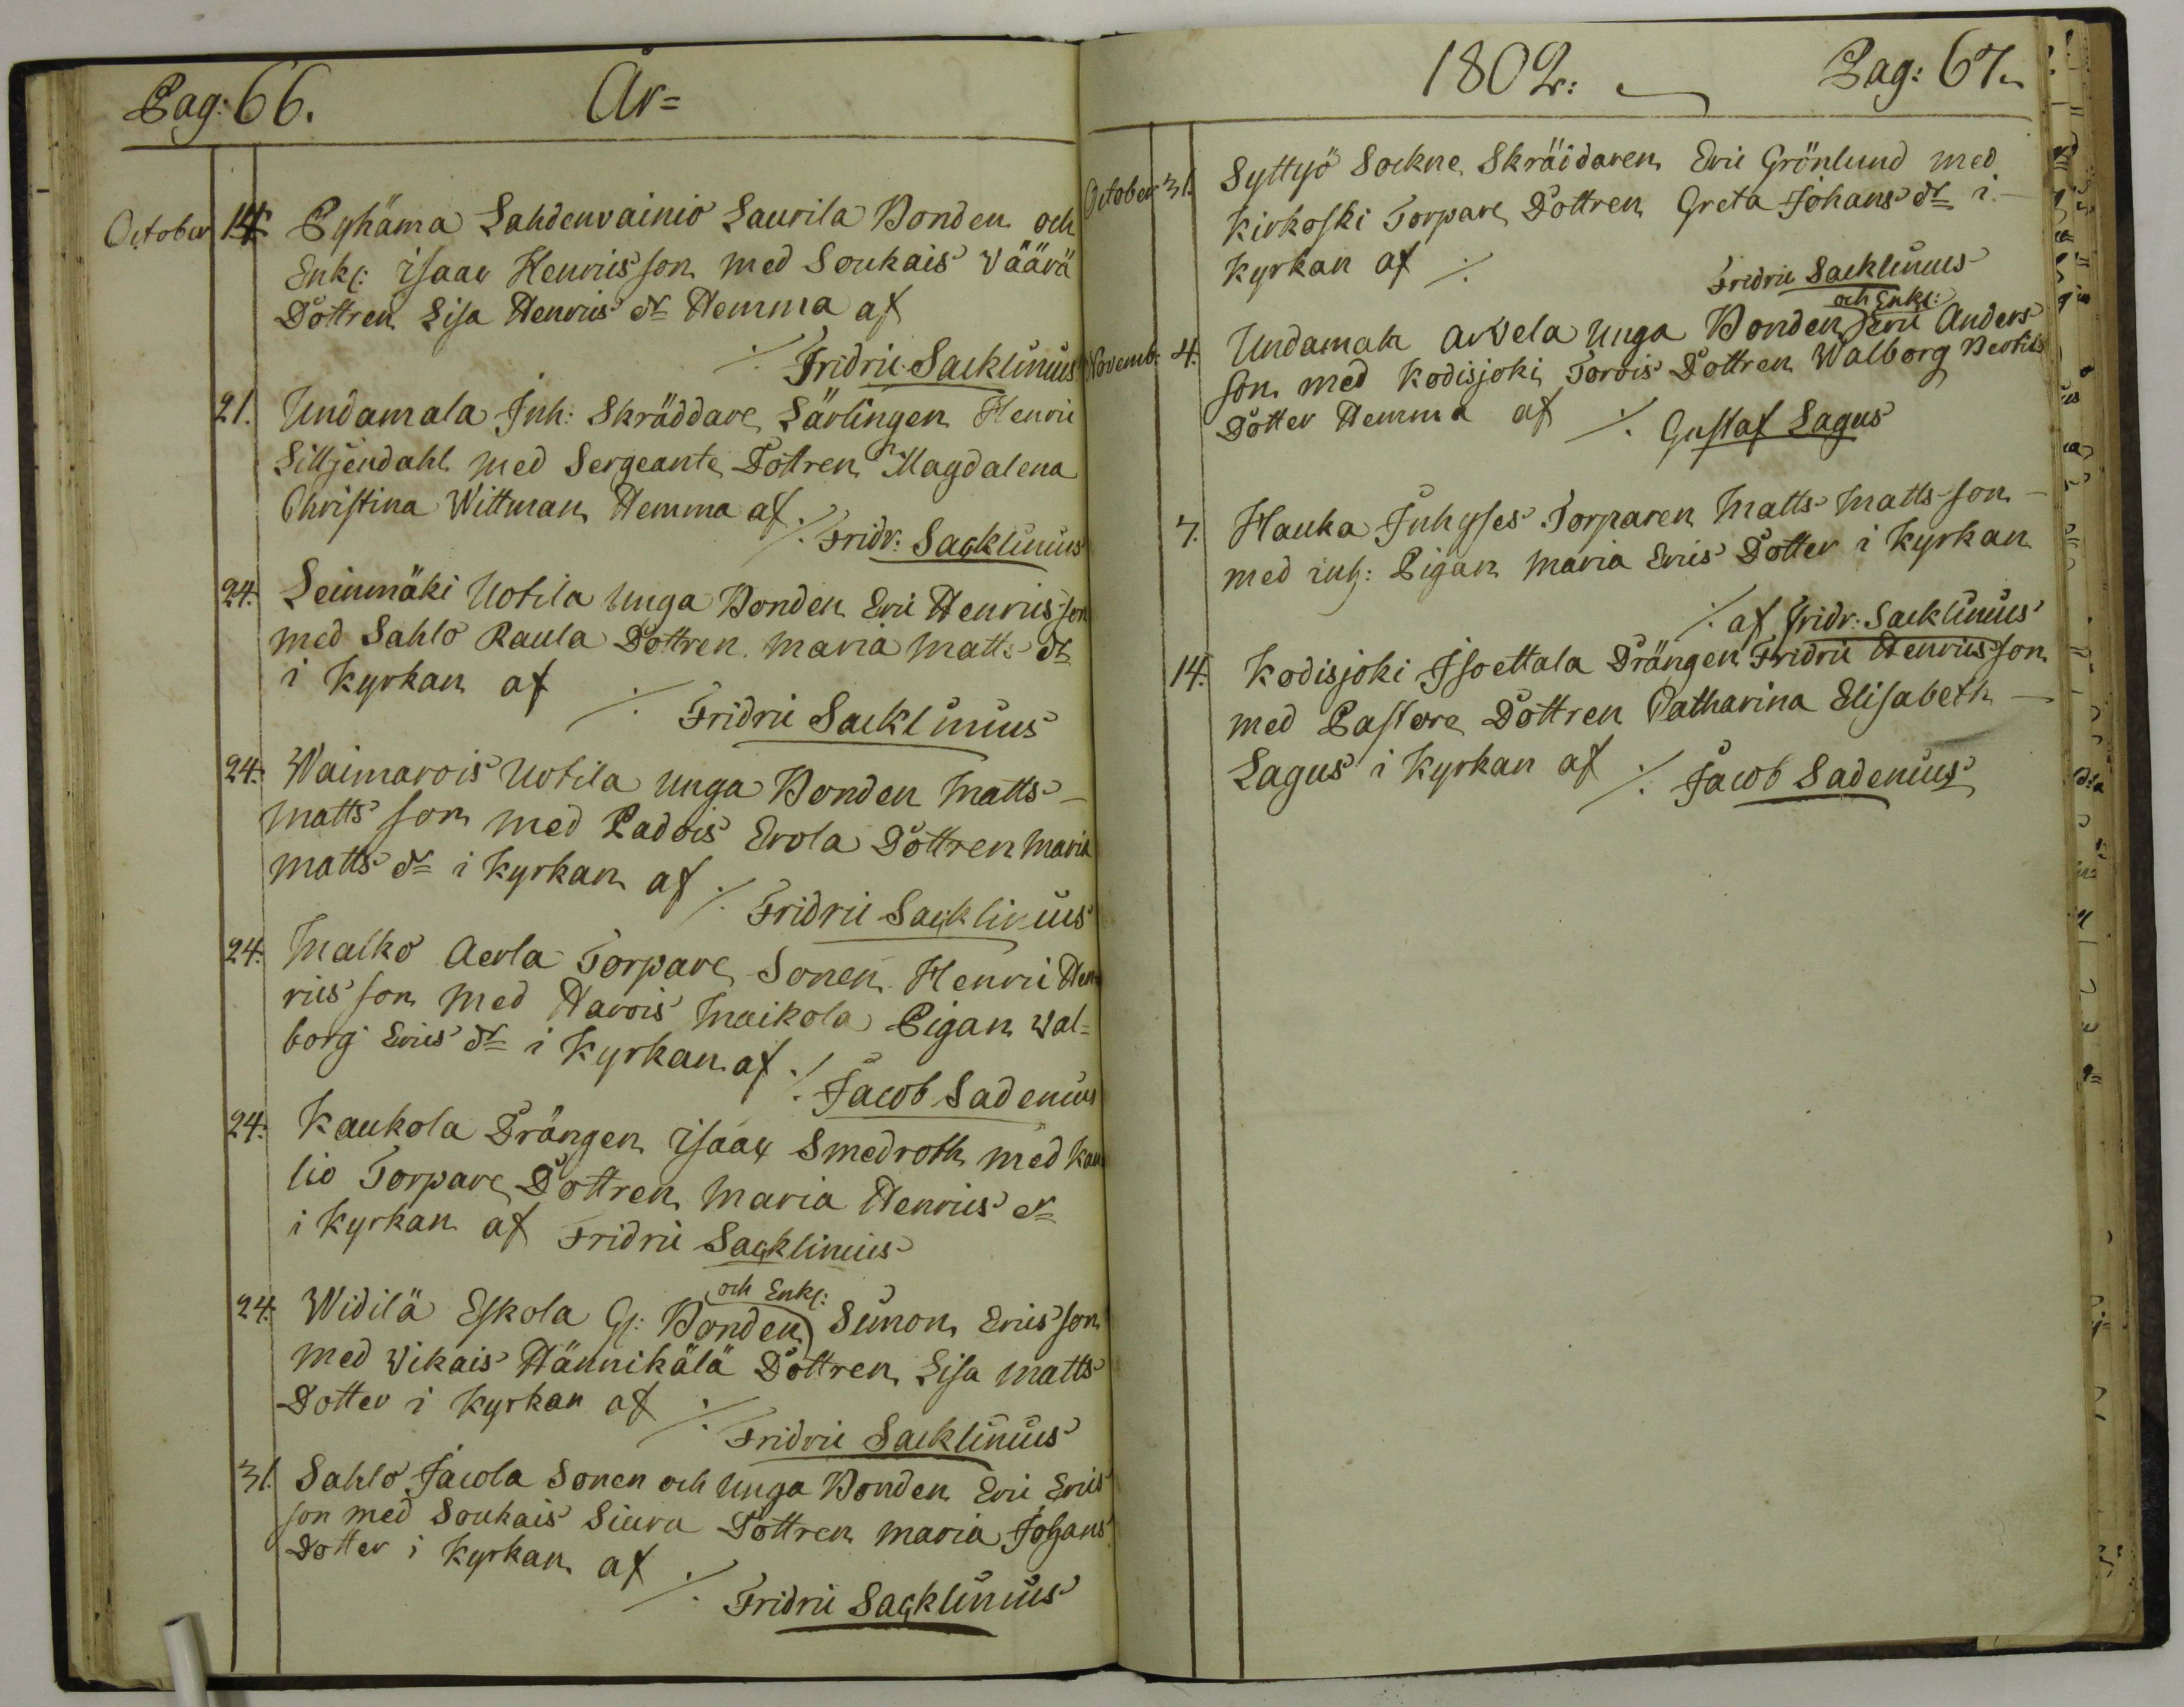 Pag: 66. År=
October 14. Pyhäma Lahdenvainio Laurila Bonden och
Enkl: Isaac Henricsson med Soukais Wäärä
Dottren Lisa Henrics dr Hemma af
⁒ Fridric Sacklinius
21. Undamala Inh: Skräddare Lärlingen Henric
Silljendahl med Sergeante Dottren Magdalena
Christina Wittman Hemma af
⁒ Fridr: Sacklinius
24. Leinmäki Uotila Unga Bonden Eric Henricsson
med Sahlo Raula Dottren Maria Matts dr
i Kyrkan af
⁒ Fridric Sacklinius
24. Waimarois Uotila unga Bonden Matts
Matts son med Padois Erola Dottren Maria
Matts dr i Kyrkan af
⁒ Fridric Sacklinius
24. Malko Aerla Torpare Sonen Henric Hen=
rics son med Harois Maikola Pigan Wal=
borg Erics dr i Kyrkan af
⁒ Jacob Sadenius
24. Kaukola Drängen Isaac Smedroth med Kau
lio Torpare Dottren Maria Henrics dr
i Kyrkan af Fridric Sacklinius
och Enkl:
24. Widilä Eskola Gl: Bonden Simon Ericsson
med Vikais Hännikälä Dottren Lisa Matts
Dotter i Kyrkan af
⁒ Fridric Sacklinius
31. Sahlo Jacola Sonen och Unga Bonden Eric Erics
son med Soukais Siura Dottren Maria Johans
Dotter i Kyrkan af
⁒ Fridric Sacklinius
1802: Pag: 67
October 31. Syttyö Sockne Skräddaren Eric Grönlund med
Kirkoski Torpare Dottren Greta Johans dr i
Kyrkan af ⁒
Fridric Sacklinius
och Enkl:
Novemb: 4. Undamala Arvela Unga Bonden Eric Anders
son med Kodisjoki Torois Dottren Walborg Bertils
Dotter Hemma af ⁒ Gustaf Lagus
7. Hauka Juhyses Torparen Matts Matts son
med inh: Pigan Maria Erics Dotter i Kyrkan
⁒ af Fridr: Sacklinius
14. Kodisjoki Isoettala Drängen Fridric Henricsson
med Pastors Dottren Catharina Elisabeth
Lagus i Kyrkan af ⁒ Jacob Sadenius